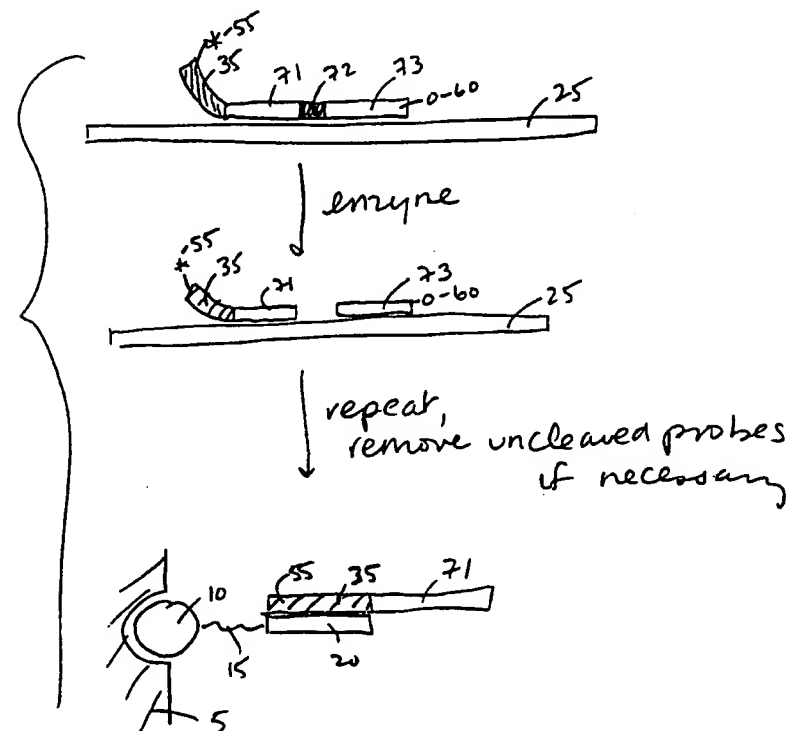 *-55
35
71 72 73
0-60
25
enzyne
*-55
35
71
73
0-60
25
repeat,
remove uncleaved probes
if necessary
10
55 35 71
15
20
5